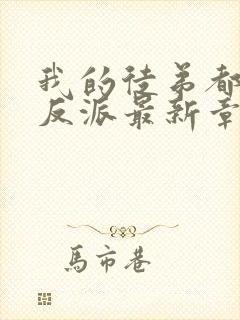 我的徒弟都
反派最新章
馬市巷